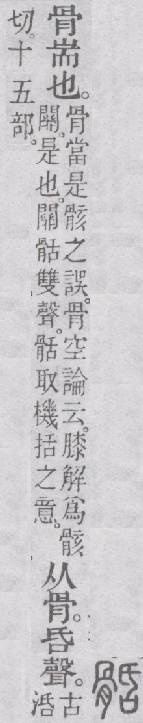 䯏
骨耑也。骨當是骸之誤。骨空論云。膝解爲骸
關。是也。關䯏雙聲。䯏取機括之意。
从骨。𠯑聲。古𣴠
切。十五部。